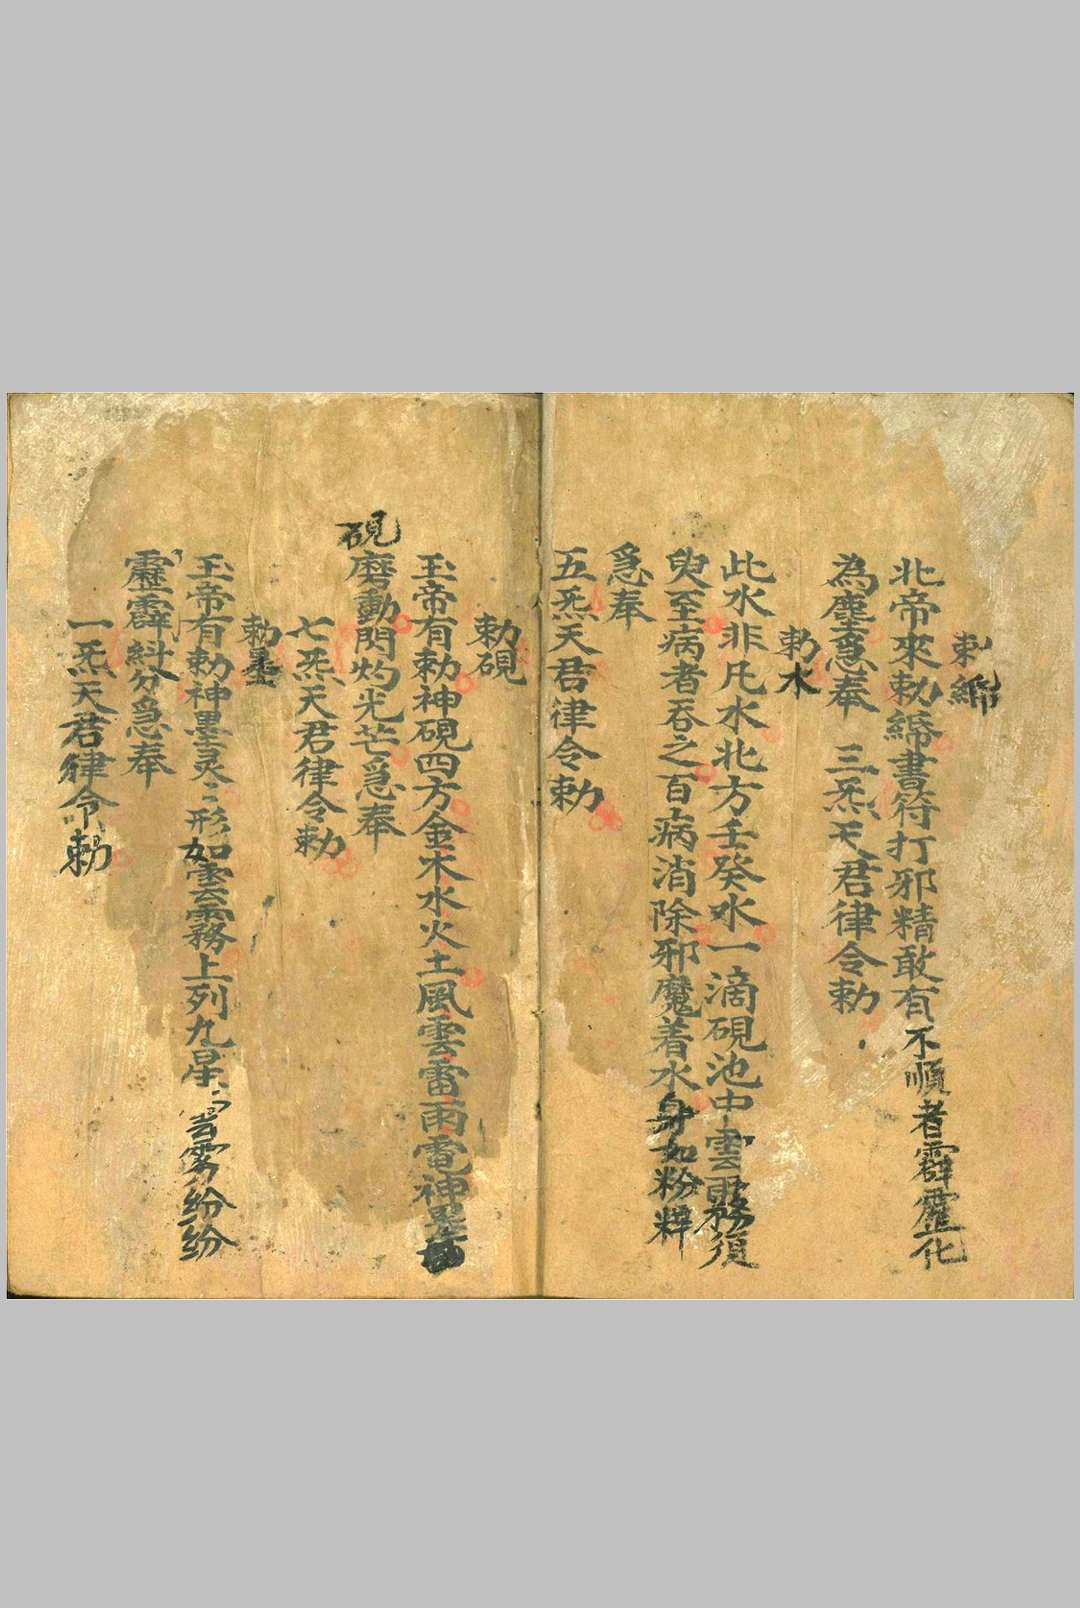 勅綿
北帝來勅綿書符打邪精敢有不順者霹靂化
為塵急奉 三炁天君律令勅
勅水
此水非凡水北方壬癸水一滴硯池中雲霧須
臾至病者吞之百病消除邪魔着水身如粉粹
急奉
五炁天君律令勅
勅硯
玉帝有勅神硯四方金木水火土風雲雷雨電神墨
硯磨動閃灼光芒急奉
七炁天君律令勅
勅墨
玉帝有勅神墨灵〻形如雲霧上列九星〻霧紛紛
靂霹糾分急奉
一炁天君律令勅